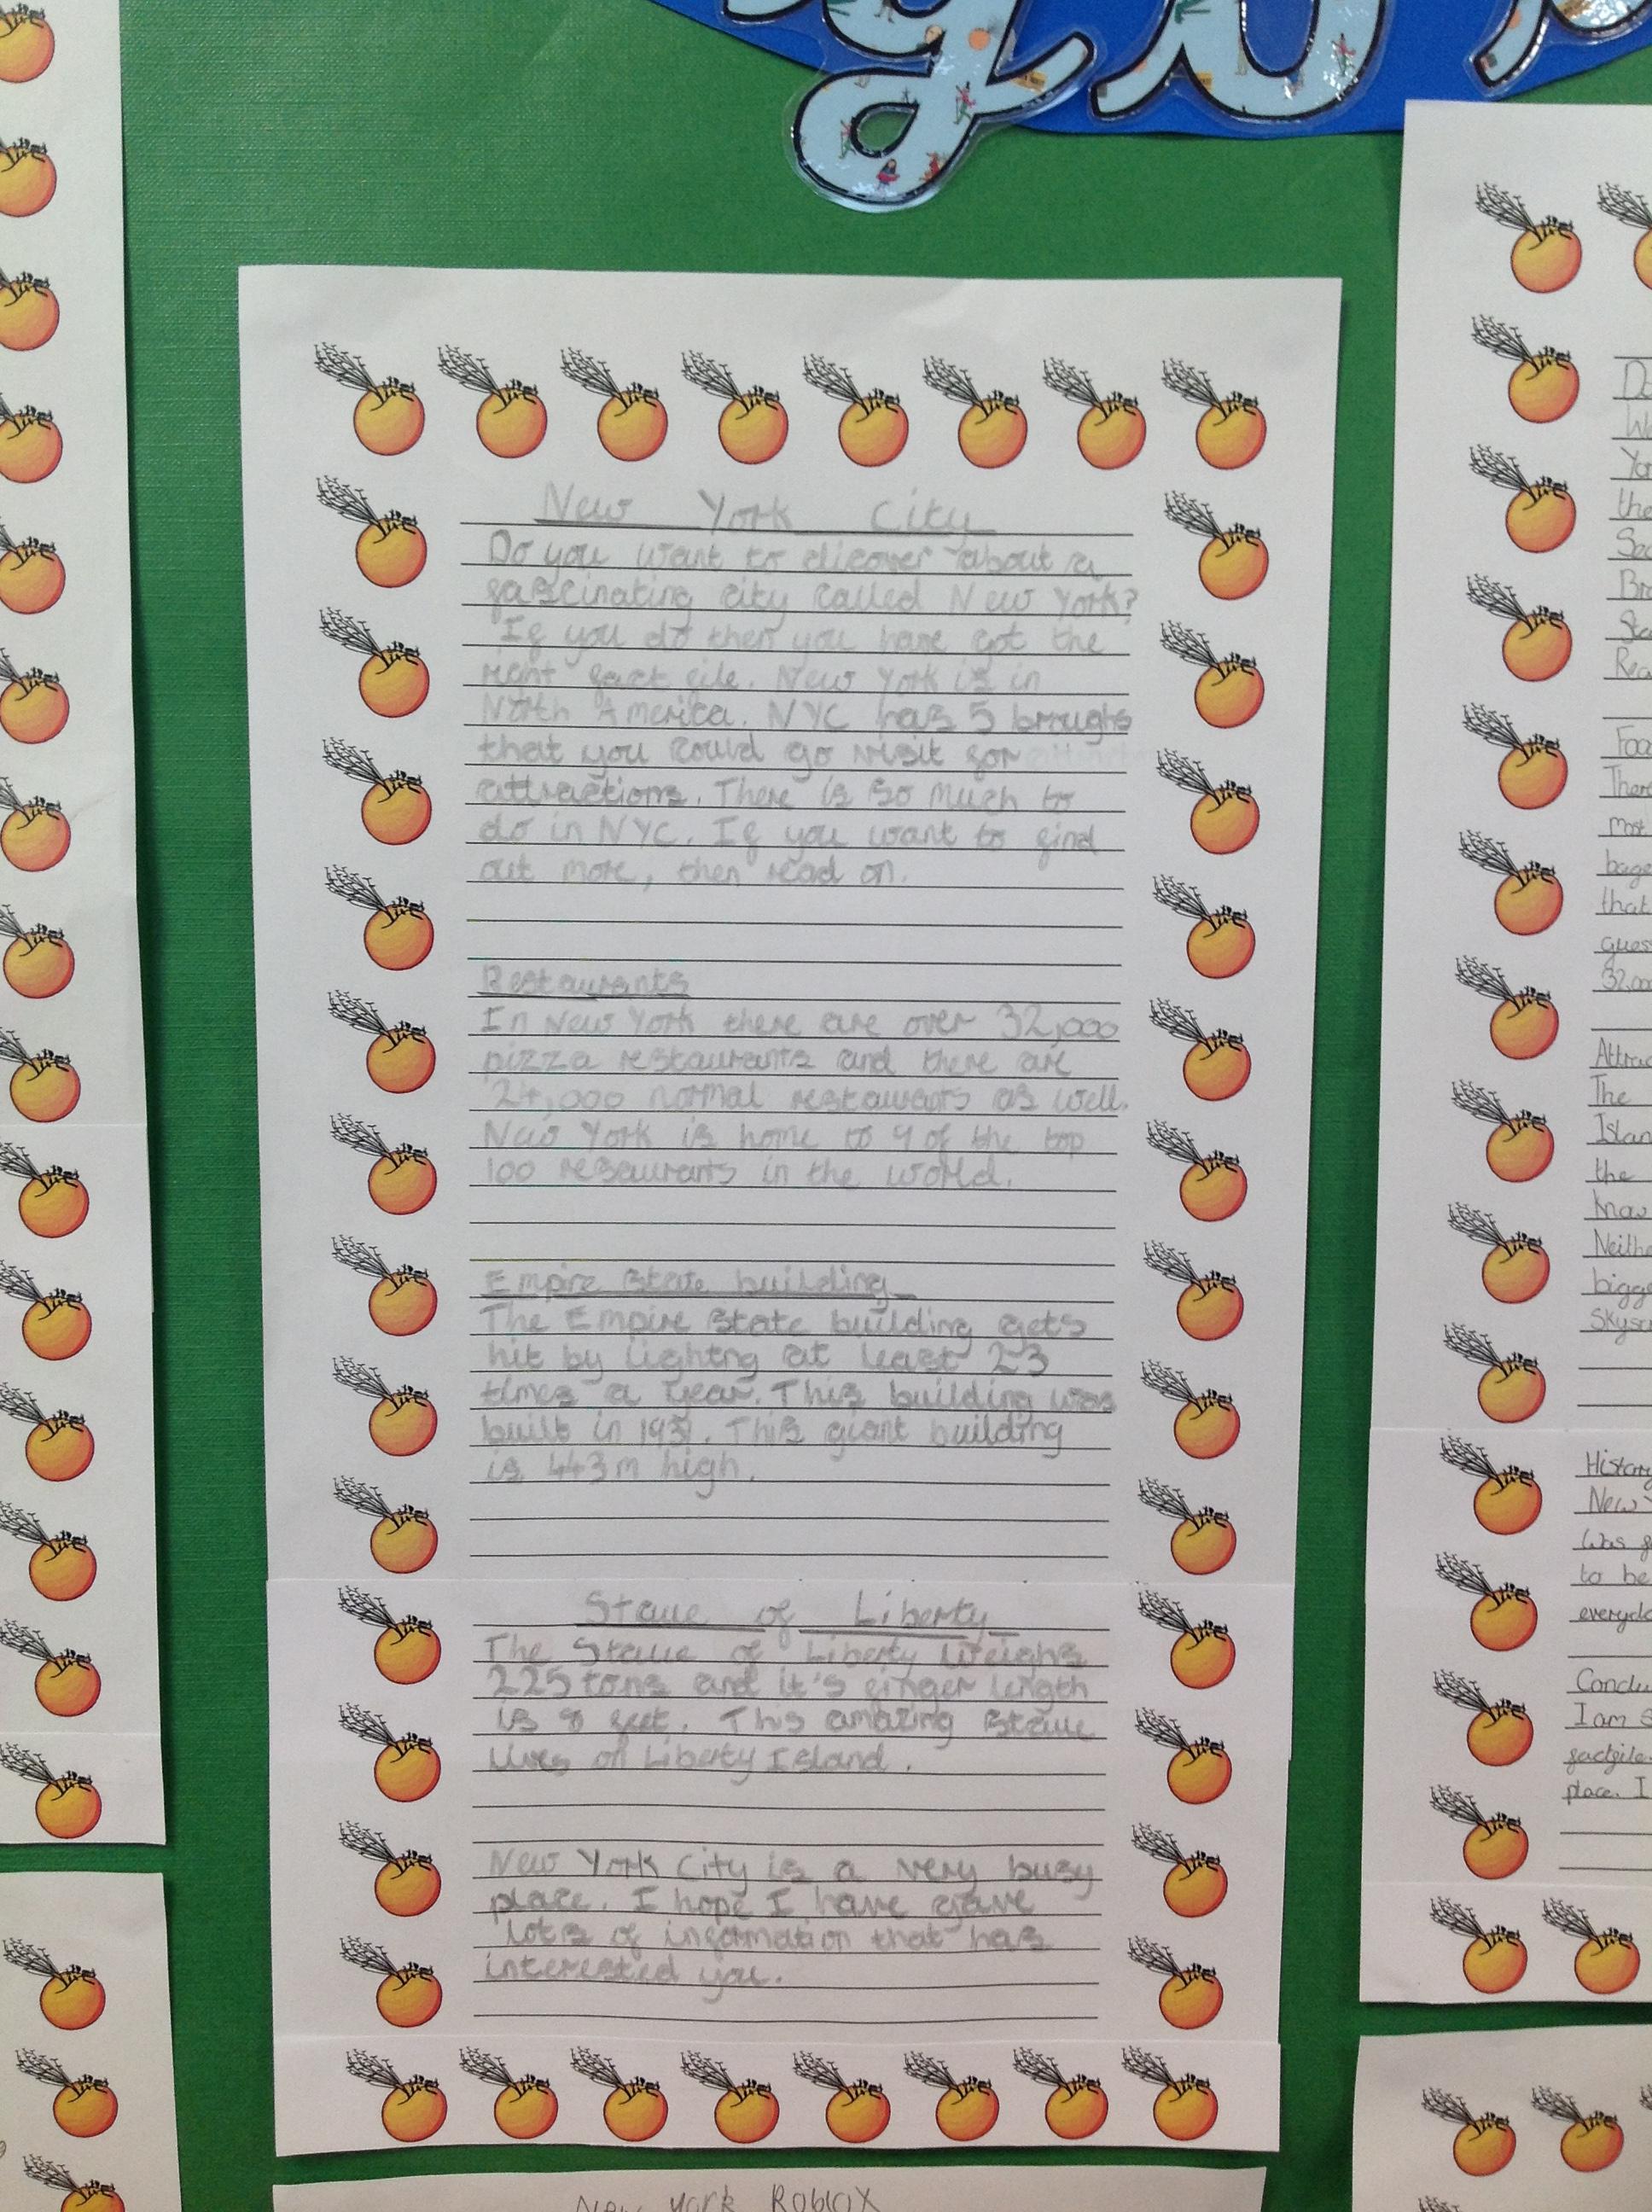 New York City
Do you want to dicover about a
fascinating city called New York?
If you do then you have got the
right fact file. New York is in
North America. NYC has 5 broughs
that you could go visit for
attractions. There is so much to
do in NYC. If you want to find
out more, then read on.
Restaurants
In New York there are over 32,000
pizza restaurants and there are
24,000 normal restaurants as well.
New York is home to 9 of the top
100 resaurants in the world.
Empire State building
The Empire State building gets
hit by lightng at least 23
times a year. This building was
built in 1931. This giant building
is 443m high.
Staue of Liberty
The Staue of Liberty weighs
225 tons and it's finger length
is 8 feet. This amazing staue
lives on Liberty Island.
New York City is a very busy
place. I hope I have gave
lots of information that has
interested you.
New York Roblox
Yor
the
Bro
Rea
There
most
that
32,000
Attrac
The
Islan
the
know
bigge
History
New Y
was
to be
everyda
I am s
factfile
place. I